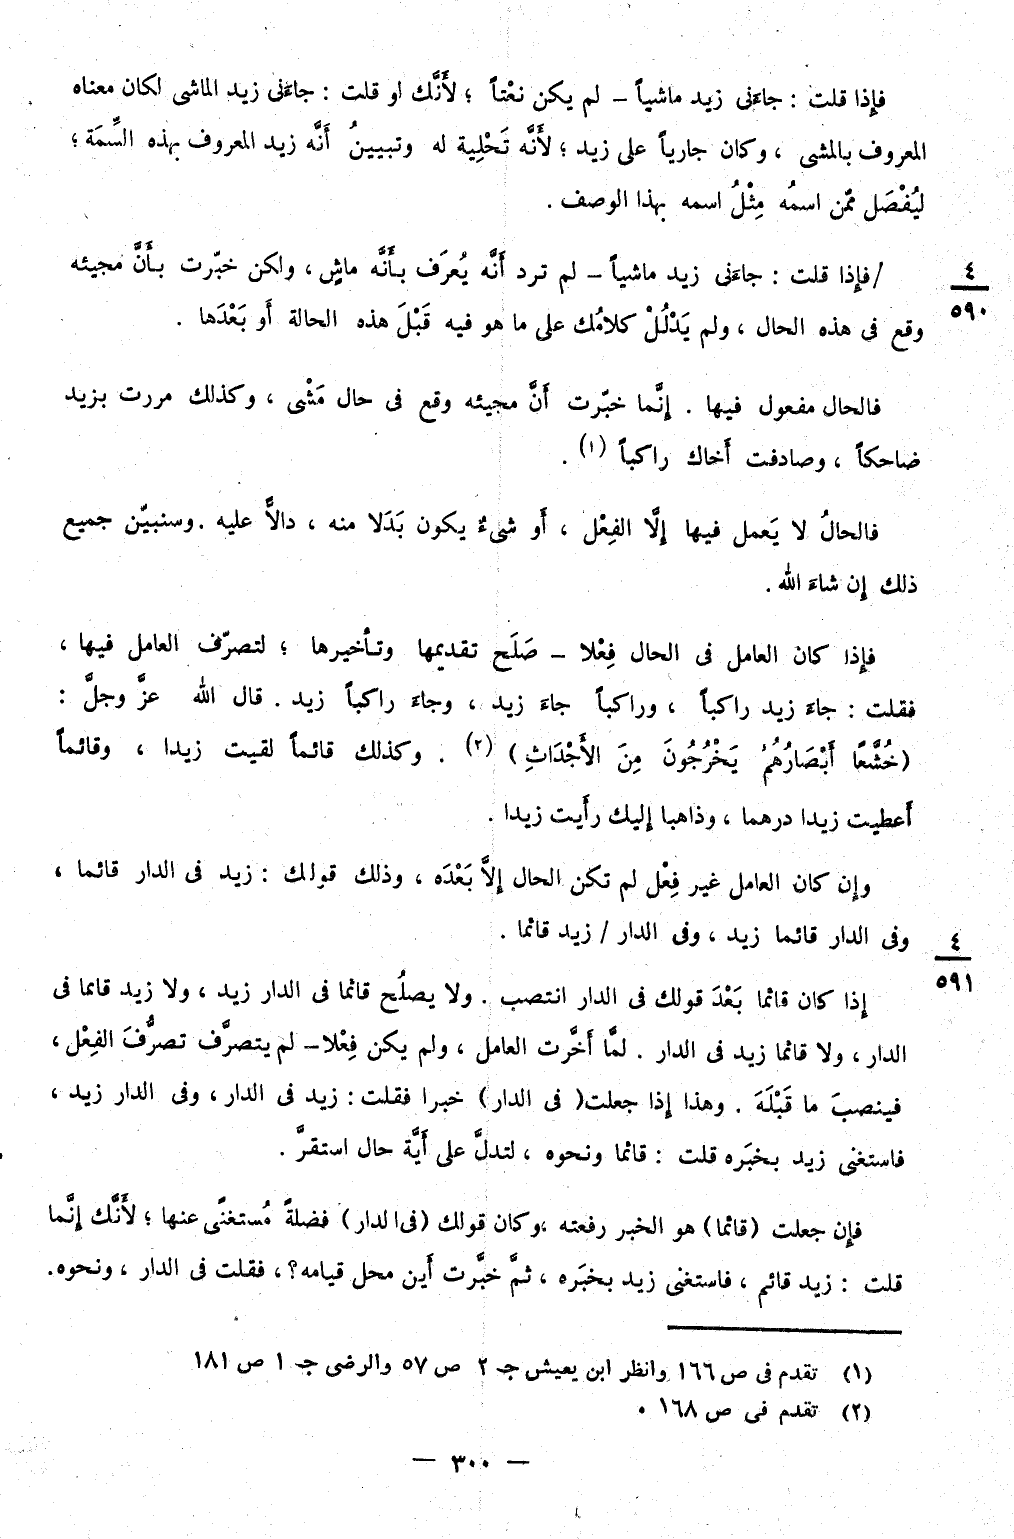 فإِذا قلت : جاءَنى زيد ماشياً – لم يكن نعْتاً ؛ لأَنَّك او قلت : جاءَنى زيد الماشى لكان معناه
المعروف بالمشى ، وكان جارياً على زيد ؛ لأَنَّه تَحْلِية له وتبيينُ أَنَّه زيد المعروف بهذه السِّمَة ؛
ليُفْصَل ممّن اسمُه مِثْلُ اسمه بهذا الوصف .
/فإِذا قلت : جاءَنى زيد ماشياً – لم ترد أَنَّه يُعرَف بأَنَّه ماشٍ ، ولكن خبّرت بأَنَّ مجيئه
٤
٥٩٠
وقع فى هذه الحال ، ولم يَدْلُلْ كلامُك على ما هو فيه قَبْلَ هذه الحالة أَو بَعْدَها .
فالحال مفعول فيها . إِنَّما خبّرت أَنَّ مجيئه وقع فى حال مَشْى ، وكذلك مررت بزيد
ضاحكاً ، وصادفت أَخاك راكباً (١) .
فالحالُ لا يَعمل فيها إِلَّا الفِعْل ، أَو شىءٌ يكون بَدَلا منه ، دالاًّ عليه .وسنبيّن جميع
ذلك إِن شاءَ الله .
فإِذا كان العامل فى الحال فِعْلا – صَلَح تقديمها وتأْخيرها ؛ لتصرّف العامل فيها ،
فقلت : جاءَ زيد راكباً ، وراكباً جاءَ زيد ، وجاءَ راكباً زيد . قال الله عزَّ وجلَّ :
(خُشَّعًا أَبْصَارُهُمْ يَخْرُجُونَ مِنَ الأَجْدَاثِ) (٢) . وكذلك قائماً لقيت زيدا ، وقائماً
أَعطيت زيدا درهما ، وذاهبا إليك رأَيت زيدا .
وإِن كان العامل غير فِعْل لم تكن الحال إِلاَّ بَعْدَه ، وذلك قولك : زيد فى الدار قائما ،
وفى الدار قائما زيد ، وفى الدار / زيد قائما .
٤
٥٩١
إِذا كان قائما بَعْدَ قولك فى الدار انتصب . ولا يصلُح قائما فى الدار زيد ، ولا زيد قائما فى
الدار ، ولا قائما زيد فى الدار . لمَّا أَخَّرت العامل ، ولم يكن فِعْلا– لم يتصرَّف تصرُّفَ الفِعْل ،
فينصبَ ما قَبْلَه . وهذا إِذا جعلت( فى الدار) خبرا فقلت : زيد فى الدار ، وفى الدار زيد ،
فاستغنى زيد بخبَره قلت : قائما ونحوه ، لتدلَّ على أَيَّة حال استقرَّ .
فإِن جعلت (قائما) هو الخبر رفعته ،وكان قولك (فى الدار) فضلةً مُستغنًى عنها ؛ لأَنَّك إِنَّما
قلت : زيد قائم ، فاستغنى زيد بخبَره ، ثمَّ خبَّرت أَين محل قيامه؟ ، فقلت فى الدار ، ونحوه.
(١) تقدم فى ص ١٦٦ وانظر ابن يعيش جـ ٢ ص ٥٧ والرضى جـ ١ ص ١٨١
(٢) تقدم فى ص ١٦٨ .
— ٣٠٠ —